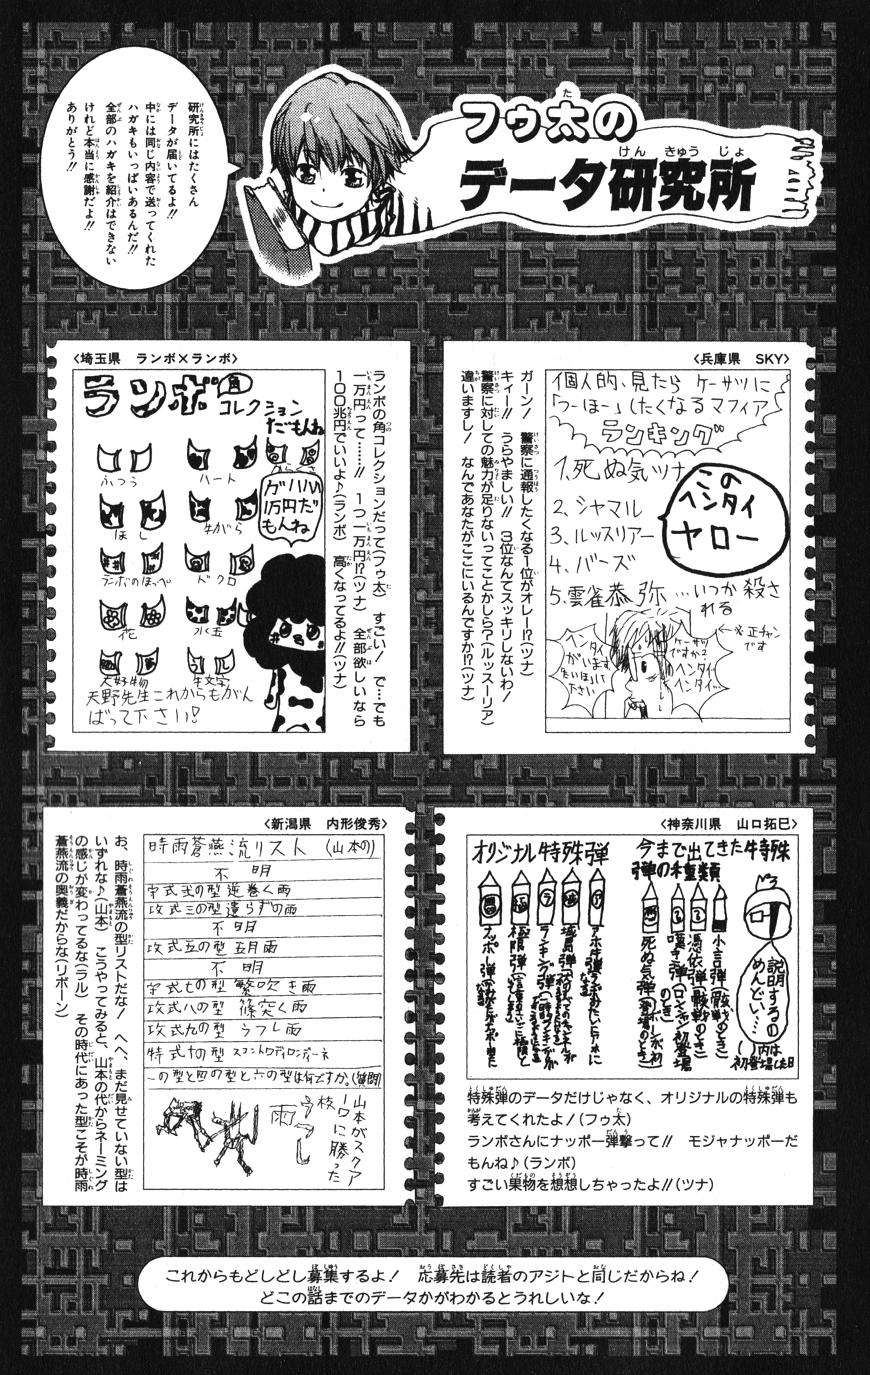 フゥ太の
データ研究所
研究所にはたくさん
データが届いてるよ!!
中には同じ内容で送ってくれた
ハガキもいっぱいあるんだ!!
全部のハガキを紹介はできない
けれど本当に感謝だよ!!
ありがとう!!
〈兵庫県 SKY〉
個人的、見たら ケーサツに
「つーほー」したくなるマフィア
ランキング
1.死ぬ気ツナ
2.シャマル
3.ルッスリアー
4.バーズ
5.雲雀恭弥…いつか殺さ
れる
この
ヘンタイ
ヤロー
ケーサツ
ですか?
ヘンタイ
ヘンタイ…
ヘンタイ
がいます
ださい
←※正チャン
です
ガーン! 警察に通報したくなる1位がオレー!?(ツナ)
キィー!! うらやましい!! 3位なんてスッキリしないわ!
警察に対しての魅力が足りないってことかしら?(ルッスーリア)
違いますし! なんであなたがここにいるんですか!?(ツナ)
〈埼玉県 ランボ×ランボ〉
ランボ
角
コレクション
だもんね
ふつう
ハート
ほし
牛がら
デーボのほっぺ
ドクロ
花
水玉
大好物
ガハハ
1万円だ
もんね
天野先生これからもがん
ばって下さい!
ランボの角コレクションだって(フゥ太) すごい! で…でも
一万円って……!! 1つ一万円!?(ツナ) 全部欲しいなら
100兆円でいいよ♪(ランボ) 高くなってるよ!!(ツナ)
〈神奈川県 山口拓巳〉
今まで出てきた特殊
弾の種類
説明するの
めんどい…
( )内は
初登場した日
小言弾(骸戦のとき)
憑依弾(骸戦のとき)
嘆き弾(ロンシャン初登場
のとき)
死ぬ気弾(登場のとき)
オリジナル特殊弾
〈新潟県 内形俊秀〉
時雨蒼燕流リスト (山本の)
不明
守式弐の型 逆巻く雨
攻式三の型 遣らずの雨
不明
攻式五の型 五月雨
不明
守式七の型 繁吹き雨
攻式八の型 篠突く雨
攻式九の型 うつし雨
特式十の型 スコントロ・ディ・ローンディネ
一の型と四の型と六の型は何ですか。(質問)
山本がスクア
ーロに勝った
技
うつし
雨
お、時雨蒼燕流の型リストだな! へへ、まだ見せていない型は
いずれな♪(山本) こうやってみると、山本の代からネーミング
の感じが変わってるな(ラル) その時代にあった型こそが時雨
蒼燕流の奥義だからな(リボーン)
特殊弾のデータだけじゃなく、オリジナルの特殊弾も
考えてくれたよ!(フゥ太)
ランボさんにナッポー弾撃って!! モジャナッポーだ
もんね♪(ランボ)
すごい果物を想想しちゃったよ!!(ツナ)
これからもどしどし募集するよ! 応募先は読者のアジトと同じだからね!
どこの話までのデータかがわかるとうれしいな!